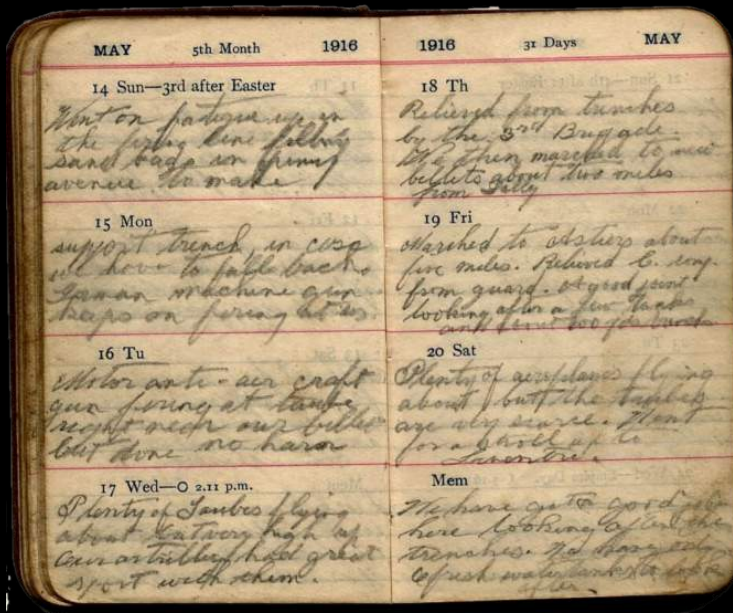 MAY 5th Month 1916
14 Sun—3rd after Easter
Went on fatigue up in
the firing line filling
sand bags in firing
avenue to make
15 Mon
support trench, in case
we have to fall back.
German machine gun
keeps on firing at us.
16 Tu
Motor anti-air craft
gun firing at taube
right near our billet
but done no harm
17 Wed—O 2.11 p.m.
Plenty of Taubes flying
about but very high up
Our artillery had great
sport with them.
1916 31 Days MAY
18 Th
Relieved from trenches
by the 3rd Brigade.
We then marched to new
billets about two miles
from
19 Fri
Marched to about
five miles. Relieved C. Coy.
from guard. A good joint
looking after a few tanks
and
20 Sat
Plenty of aeroplanes flying
about, but the taubes
are very scarce. Went
for a stroll up to
Laventie.
Mem
We have got a good job
here looking after the
trenches. We have only
6 fresh water tanks to look
after.